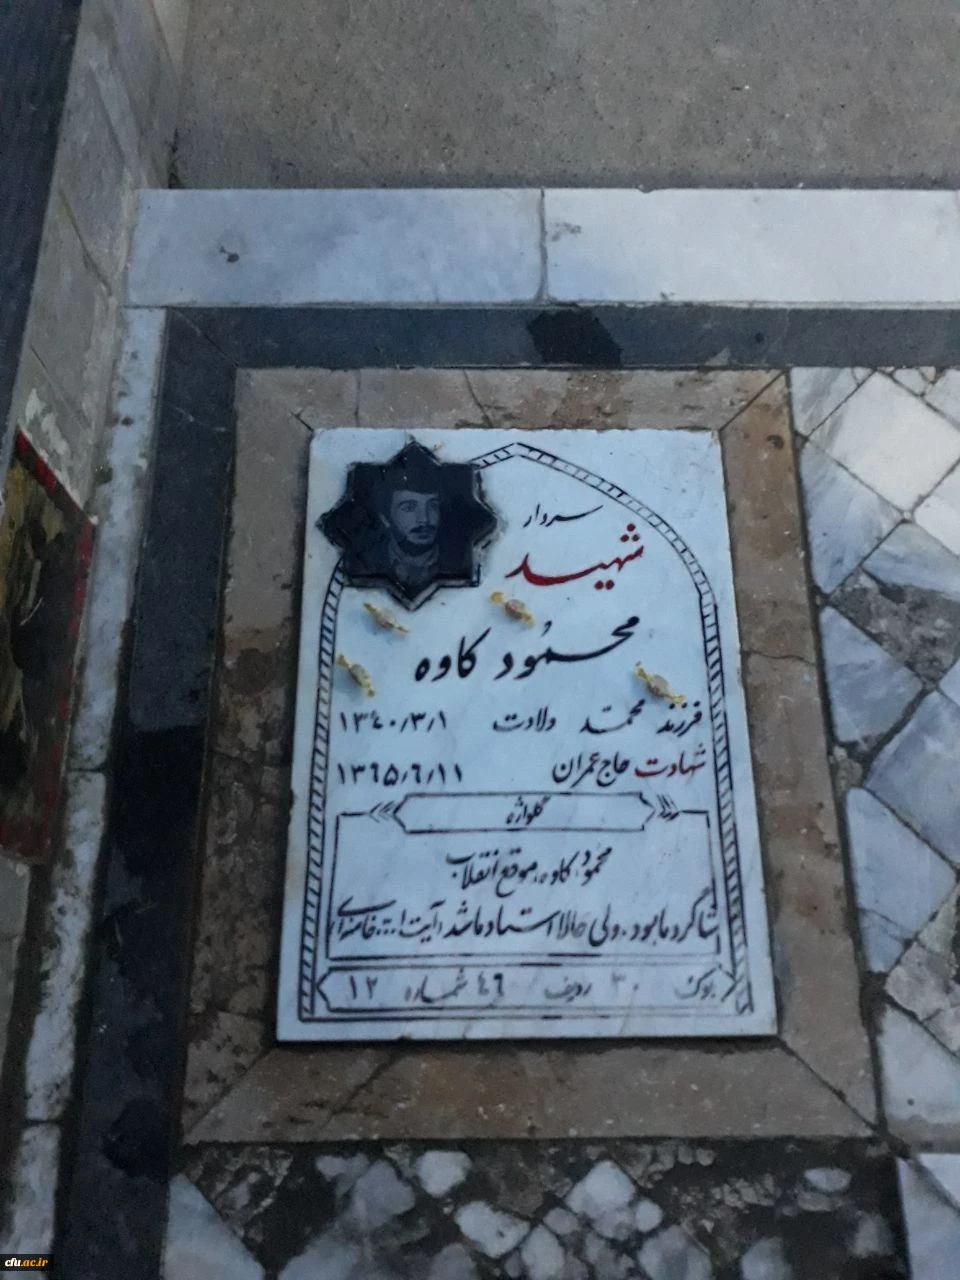 سردار
شهید
محمُود کاوه
فرزند محمّد ولادت ۱۳٤۰/۳/۱
شهادت حاج عمران ۱۳٦۵/٦/۱۱
گلواژه
محمُود کاوه، موقع انقلاب
شاگرد ما بود، ولی حالا استاد ما شد، آیت ا... خامنه‌ای
بلوک ۳۰ ردیف ٤٦ شماره ۱۲
cfu.ac.ir